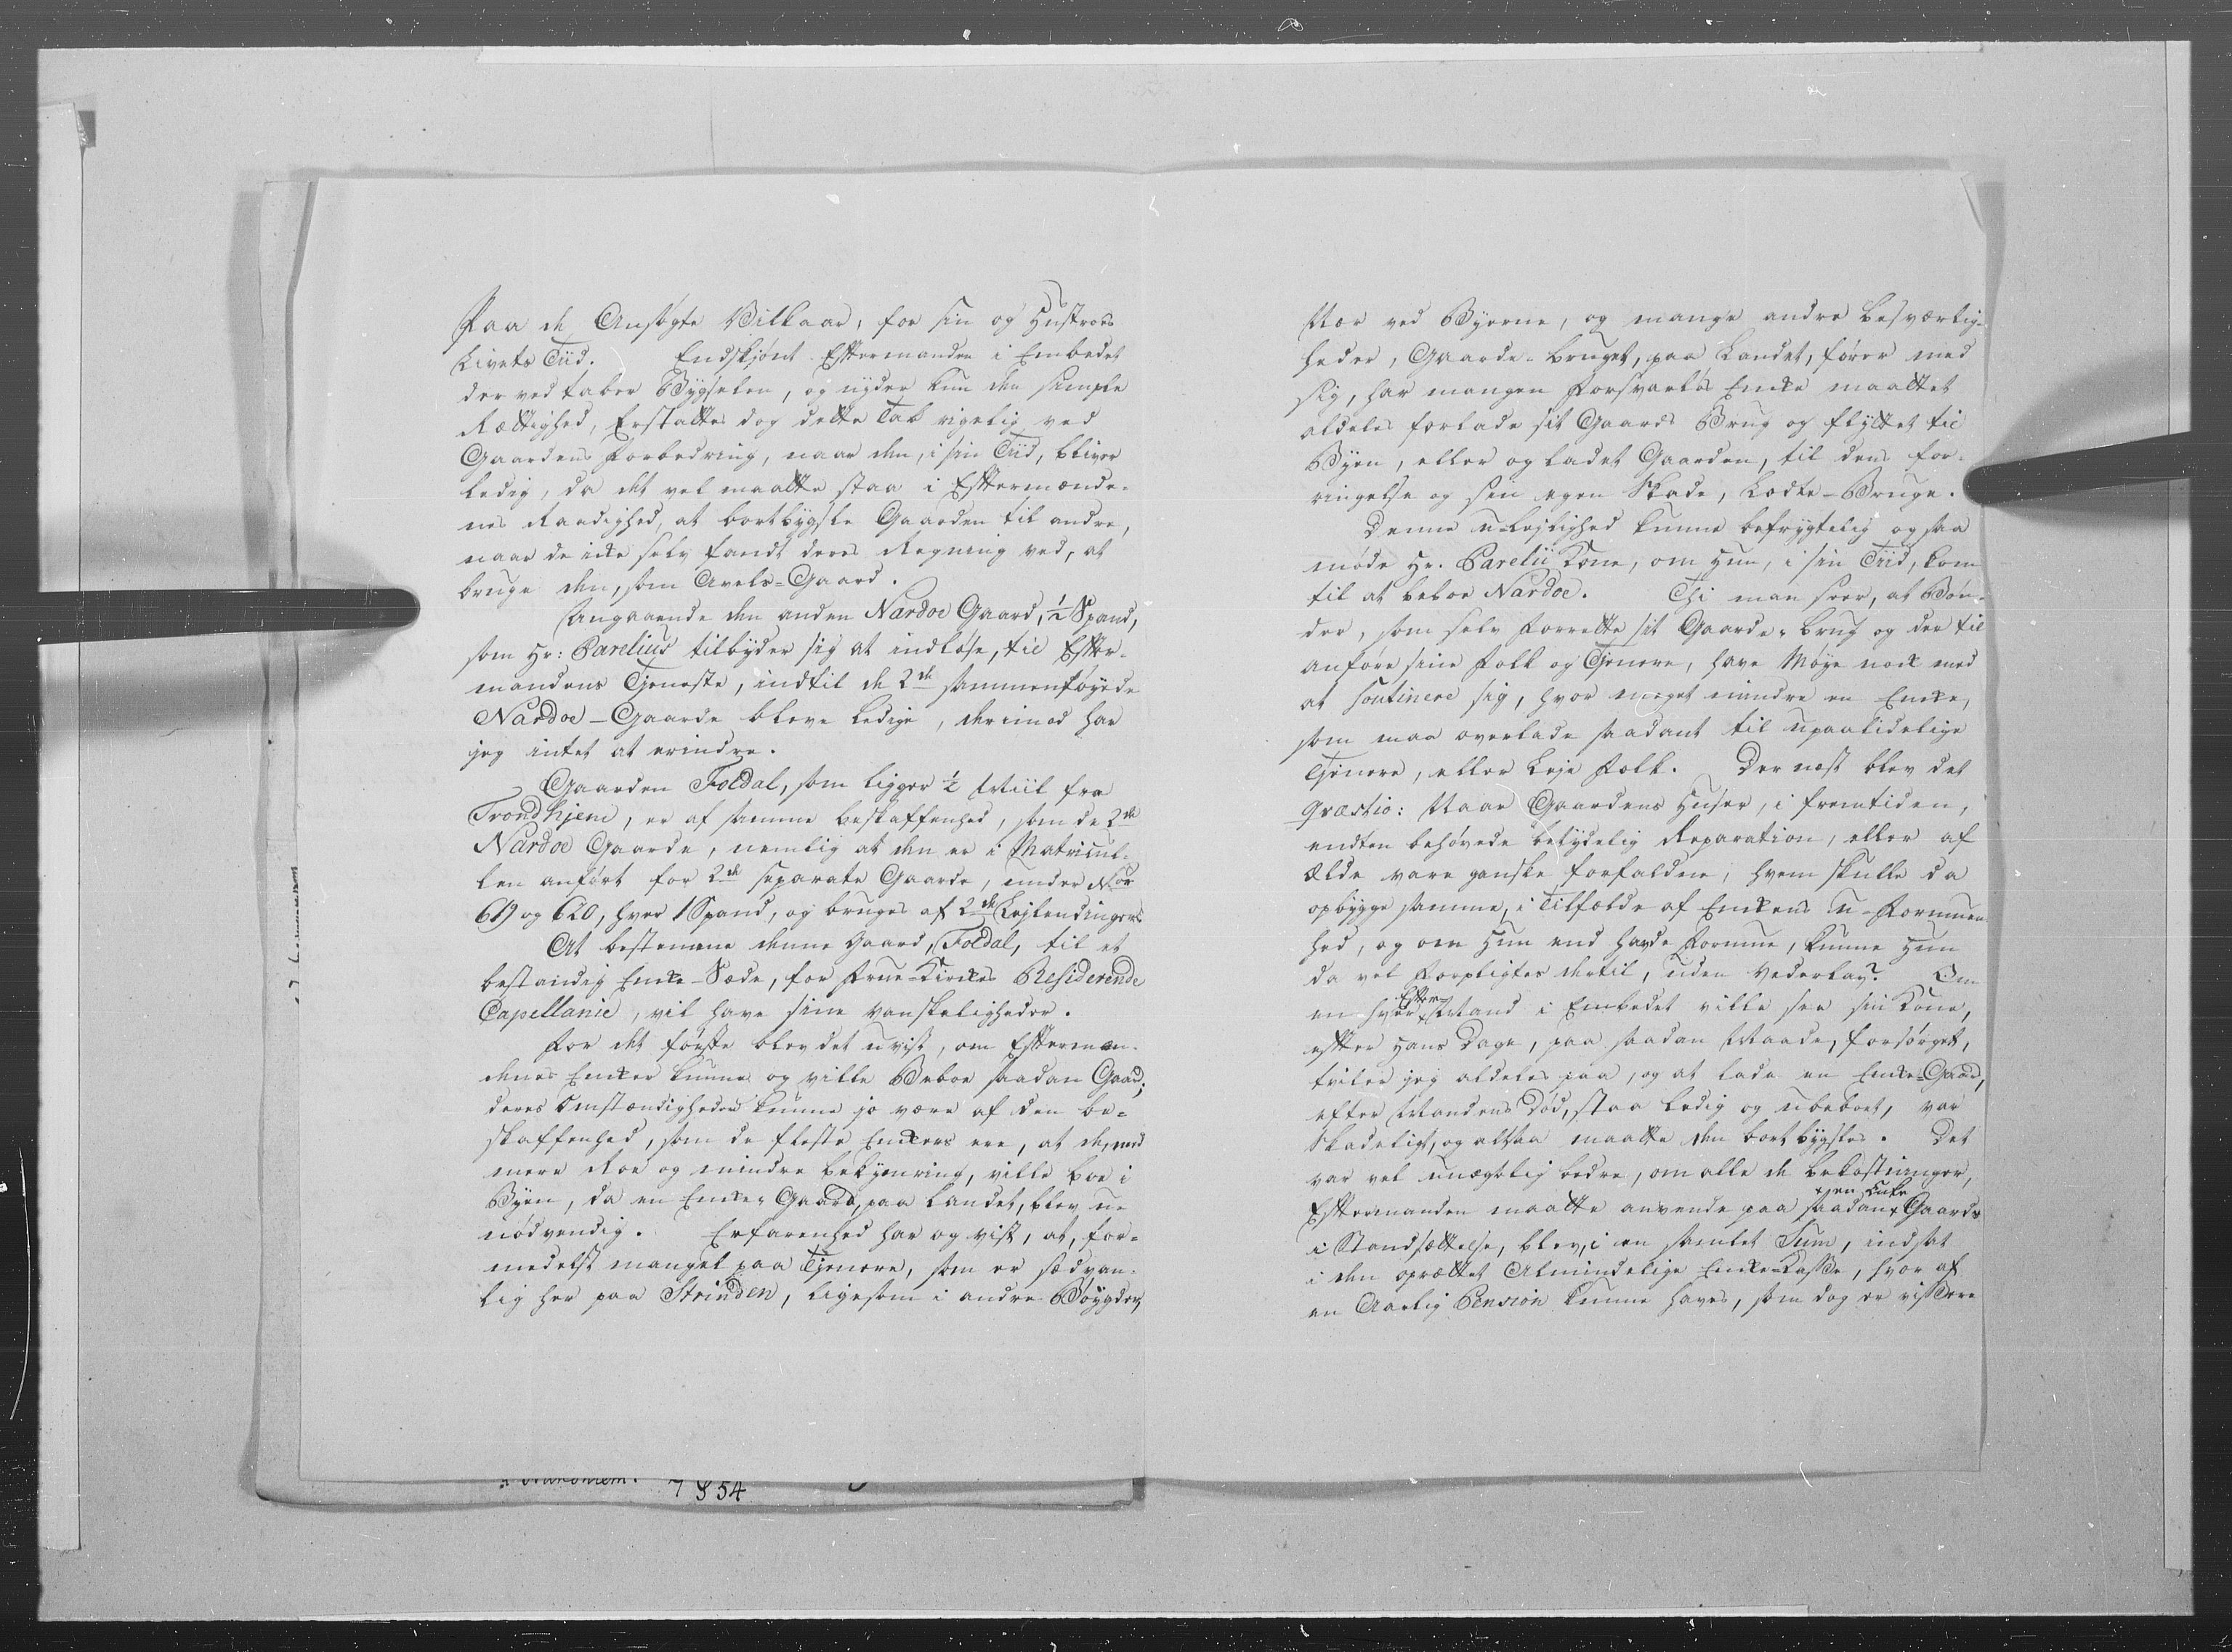 Paa de Ansøgte Vilkaar, for sin og Hustroes
Livets Tiid. Endskjønt Efftermanden i Embedet
der ved taber Bygselen, og nyder kun den simple
Rættighed, Erstattes dog dette Tab rigelig ved
Gaardens Forbedring, naar den, i sin Tiid, bliver
ledig, da det vel maatte staa i Efftermænde-
nes Raadighed, at bortbygsle Gaarden til andre,
naar de icke selv fandt deres Regning ved, at
bruge den, som Avels-Gaard.
Angaaende den anden Nardoe Gaard, 1/2 Spand,
som Hr: Parelius tilbyder sig at indløse, til Effter-
mandens Tjeneste, indtil de 2de sammenføyede
Nardoe-Gaarde bleve ledige, derimod har
jeg intet at erindre.
Gaarden Foldal, som ligger 1/2 Miil fra
Trondhjem, er af samme beskaffenhed, som de 2de
Nardoe Gaarde, nemlig at den er i Matricul-
len anført for 2de separate Gaarde, under No
619 og 620, hver 1 Spand, og bruges af 2de Lejlendinger
At bestemme denne Gaard, Foldal, til et
bestandig Encke-Sæde, for Frue-Kirckes Residerende
Capellanie, vil have sine vanskeligheder.
For det første blev det uvist, om Effterman-
denes Encker kunne og ville Beboe saadan Gaard;
deres Omstændigheder kunne jo være af den be-
skaffenhed, som de fleste Enckers ere, at de, med
mere Roe og mindre bekymring, ville boe i
Byen, da en Encke-Gaard, paa Landet, blev u-
nødvendig. Erfarenhed har og vist, at, for-
medelst mangel paa Tjenere, som er sædvan-
lig her paa Strinden, ligesom i andre Bøygder,
Nær ved Byerne, og mange andre besværlig-
heder, Gaards-bruget, paa Landet, fører med
sig, har mangen Forsvarløs Encke maattet
aldeles forlade sit Gaards Brug og flyttet til
Byen, eller og ladet Gaarden, til dens for-
ringelse og sin egen Skade, Lodte-Bruge.
Denne u-Lejlighed kunne befrygtelig ogsaa
møde Hr. Parelii Kone, om Hun, i sin Tiid, kom
til at beboe Nardoe. Thi man seer, at Bøn-
der, som selv Forrette sit Gaards-brug og der til
anføre sine Folk og Tjenere, have Møye nock med
at soutinere sig, hvor meget mindre en Encke,
som maa overlade saadant til upaalidelige
Tjenere, eller Leje Folk. Der næst blev det
Qvæstio: Naar Gaardens Huser, i fremtiden,
endten behøvede betydelig Reparation, eller af
Ælde vare ganske forfaldene, hvem skulle da
opbygge samme, i Tilfælde af Enckens u-Formuen-
hed, og om Hun end havde Formue, kunne Hun
da vel Forpligtes dertil, uden Vederlag? Om
en hver Effter Mand i Embedet ville see sin Kone,
effter Hans Dage, paa saadan Maade, forsørget,
tviler jeg aldeles paa, og at lade en Encke-Gaard,
effter Mandens Død, staa ledig og ubeboet, var
Skadeligt, og altsaa maatte den bortbygsles. Det
var vel unægtelig bedre, om alle de bekostninger,
Efftermanden maatte anvende paa saadan en Enke Gaards
i Standsættelse, blev, i en samlet Sum, indsat
i den oprættet Almindelige Encke-Casse, hvor af
en Aarlig Pension kunne haves, som dog er vissere
7854